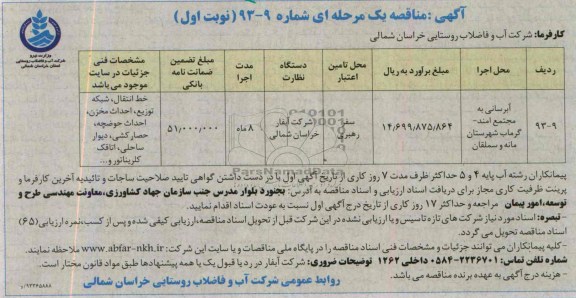 آگهی :مناقصه یک مرحله ای شماره ۹-۹۳ (نوبت اول)
کارفرما: شرکت آب و فاضلاب روستایی خراسان شمالی
شرکت آب و فاضلاب روستایی
استان خراسان شمالی
ردیف
محل اجرا
مبلغ برآورد به ریال
محل تامین اعتبار
دستگاه نظارت
مدت اجرا
مبلغ تضمین ضمانت نامه بانکی
مشخصات فنی جزئیات در سایت موجود می باشد
۹-۹۳
آبرسانی به مجتمع امند-گرماب شهرستان مانه و سملقان
۱۴/۶۹۹/۸۷۵/۸۶۴
سفر رهبری
شرکت آبفار خراسان شمالی
۸ ماه
۵۱/۰۰۰/۰۰۰
خط انتقال، شبکه توزیع، احداث مخزن، احداث حوضچه، حصارکشی، دیوار ساحلی، اتاقک کلریناتور و...
پیمانکاران رشته آب پایه ۴ و ۵ حداکثر ظرف مدت ۷ روز کاری از تاریخ آگهی اول با در دست داشتن گواهی تایید صلاحیت ساجات و تائیدیه آخرین کارفرما و
پرینت ظرفیت کاری مجاز برای دریافت اسناد ارزیابی و اسناد مناقصه به آدرس: بجنورد بلوار مدرس جنب سازمان جهاد کشاورزی،معاونت مهندسی طرح و
توسعه،امور پیمان مراجعه و حداکثر ۱۷ روز کاری از تاریخ درج آگهی اول نسبت به عودت اسناد اقدام نمایید.
-تبصره: اسناد مورد نیاز شرکت های تازه تاسیس و یا ارزیابی نشده در این شرکت قبل از تحویل اسناد مناقصه،ارزیابی کیفی شده و پس از کسب،نمره ارزیابی(۶۵)
اسناد مناقصه تحویل می گردد.
-کلیه پیمانکاران می توانند جزئیات و مشخصات فنی اسناد مناقصه را در پایگاه ملی مناقصات و یا سایت این شرکت: www.abfar-nkh.ir ملاحظه نمایند.
شماره تلفن تماس: ۲۲۳۶۷۰۱-۰۵۸۴ داخلی ۱۲۶۲ توضیحات ضروری: شرکت آبفار در رد یا قبول یک یا همه پیشنهادها طبق مواد قانون مختار است.
- هزینه درج آگهی به عهده برنده مناقصه می باشد.
روابط عمومی شرکت آب و فاضلاب روستایی خراسان شمالی